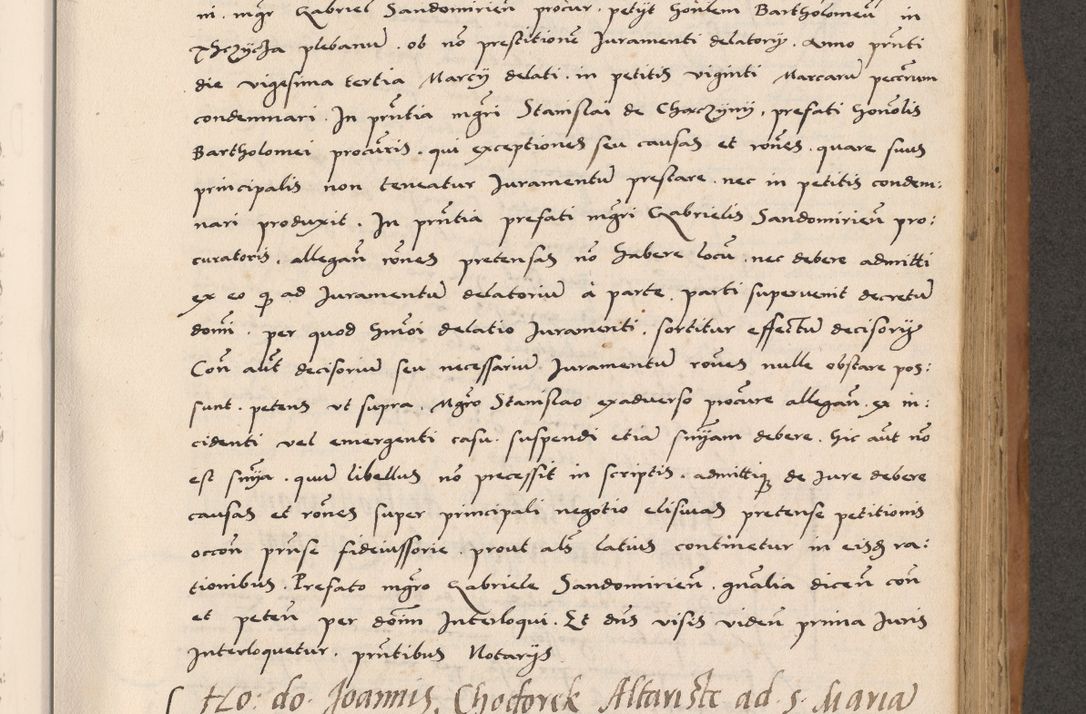 ni . mgr Gabriel Sandomirien̄ procur . petijt honlem Bartholomeū in
plebanū . ob nō prestitionē Juramenti delatorij . Anno prn̄ti
die vigesima tertia Marcij delati . in petitis viginti Marcarū pecn̄rum
condemnari . In prn̄tia mgr̄i Stanislai de Chaczijnij , prefati honōlis
Bartholomei procūris . qui exceptiones seu causas et rōnes . quare suus
principalis non teneatur Juramentū prestare . nec in petitis condem:
nari produxit . In prn̄tia prefati mgr̄i Gabrielis Sandomirien̄ pro:
curatoris . allegan̄ rōnes pretensas nō habere locū . nec debere admitti
ex eo q ad Juramentū delatoriū à parte . parti supervenit decretū
domī . per quod hm̄oi delatio Juramenti . sortitur effectū decisorij
Con̄ aūt decisoriū seu necessariū Juramentū rōnes nulle obstare pos:
sunt . petens vt supra . Mgr̄o Stanislao exadverso procūre allegan̄ . ex in:
cidenti vel emergenti casu . suspendi etiā snīam debere . hic aūt nō
est snīa . quū libellus nō precessit in scriptis . admittiq de Jure debere
causas et rōnes super principali negotio elisivas pretense petitionis
occon̄ prn̄se fideiussorie . prout als̄ latius continetur in eisd ra:
tionibus . Prefato mgr̄o Gabriele Sandomirien̄ . gnālia dicen̄ con̄
et peten̄ per domī Interloqui . Et dn̄s visis viden̄ prima Juris
Interloquetur . prn̄tibus Notarijs
Ho: do. Joannis Chodorek Altariste ad s. Mariā